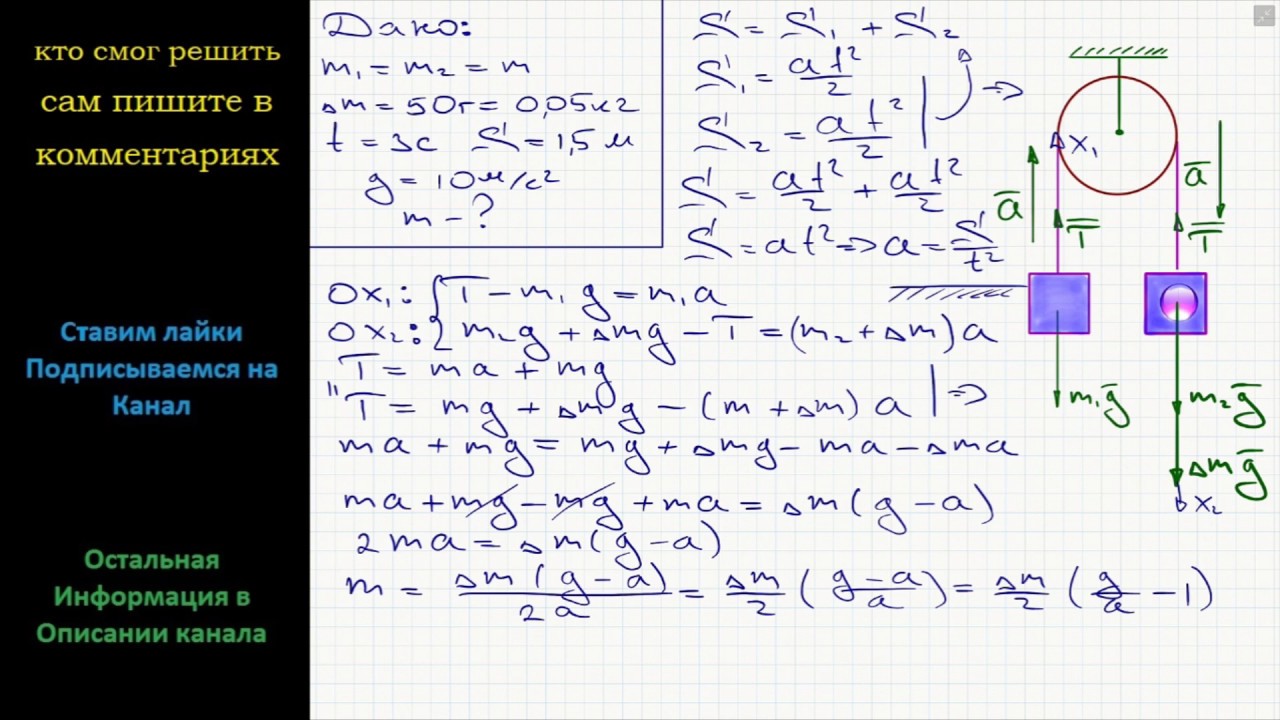 кто смог решить
сам пишите в
комментариях
Ставим лайки
Подписываемся на
Канал
Остальная
Информация в
Описании канала
Дано:
m₁ = m₂ = m
Δm = 50г = 0,05кг
t = 3с S = 1,5 м
g = 10м/с²
m - ?
S = S₁ + S₂
S₁ = at²/2
S₂ = at²/2 | =>
S = at²/2 + at²/2
S = at² => a = S/t²
0x₁: { T - m₁g = m₁a
0x₂: { m₂g + Δmg - T = (m₂ + Δm)a
T = ma + mg
" T = mg + Δmg - (m + Δm)a | =>
ma + mg = mg + Δmg - ma - Δma
ma + mg - mg + ma = Δm(g - a)
2ma = Δm(g - a)
m = Δm(g - a)/2a = Δm/2 (g - a/a) = Δm/2 (g/a - 1)
x₁
a̅
a̅
T̅
T̅
m₁g̅
m₂g̅
Δmg̅
x₂